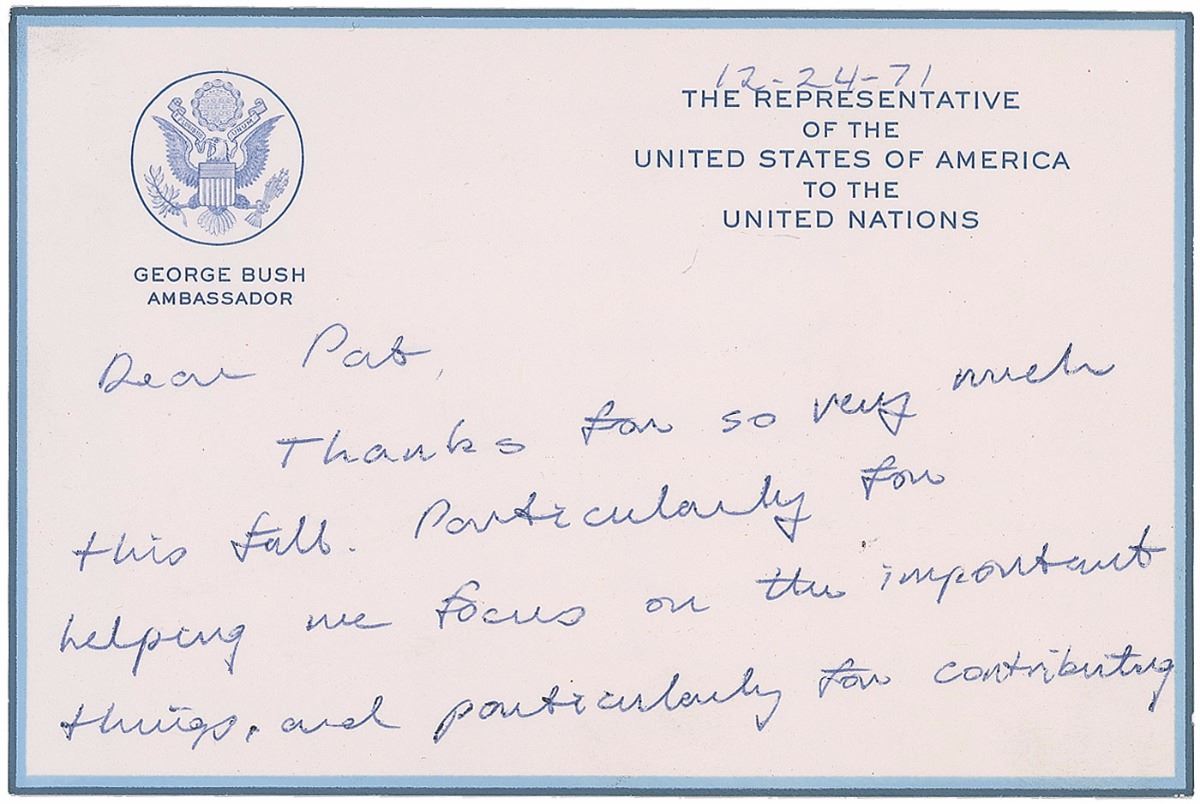 12-24-71
THE REPRESENTATIVE
OF THE
UNITED STATES OF AMERICA
TO THE
UNITED NATIONS
E PLURIBUS UNUM
GEORGE BUSH
AMBASSADOR
Dear Pat,
Thanks for so very much
this fall. Particularly for
helping me focus on the important
things, and particularly for contributing